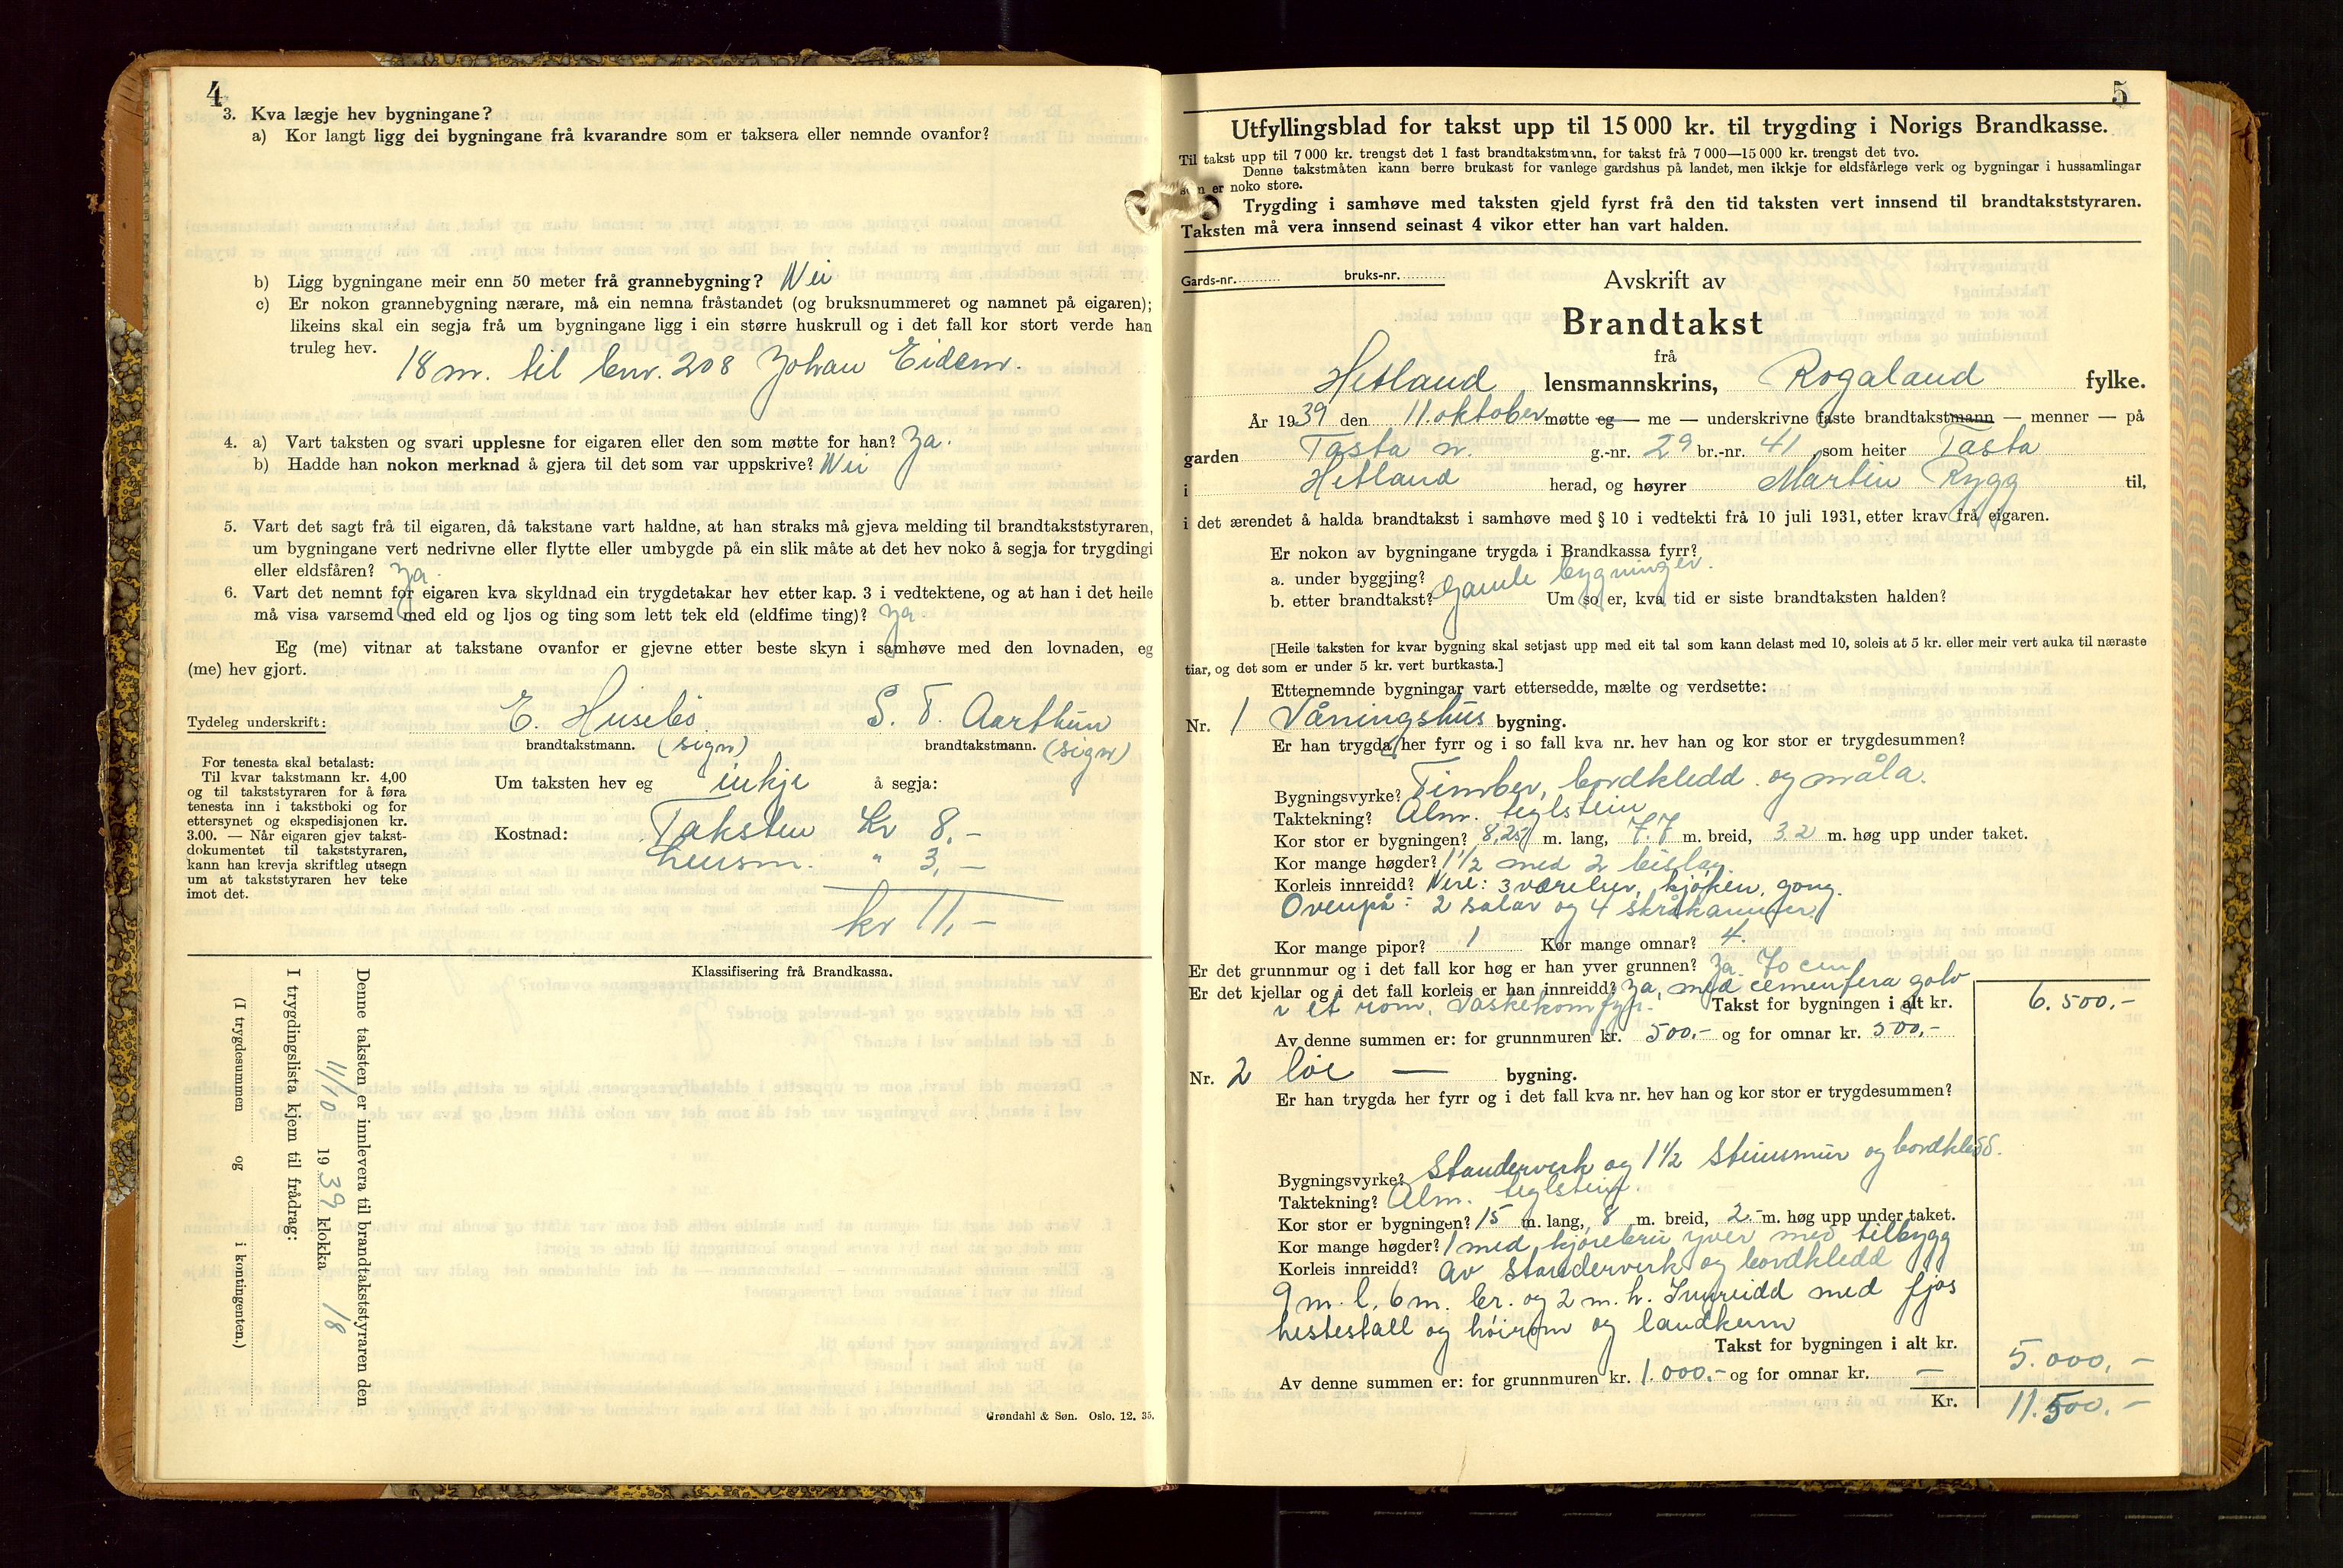 4
3. Kva lægje hev bygningane?
a) Kor langt ligg dei bygningane frå kvarandre som er taksera eller nemnde ovanfor?
b) Ligg bygningane meir enn 50 meter frå grannebygning? Nei
c) Er nokon grannebygning nærare, må ein nemna fråstandet (og bruksnummeret og namnet på eigaren);
likeins skal ein segja frå um bygningane ligg i ein større huskrull og i det fall kor stort verde han
truleg hev.
18 m. til bnr. 208 Johan Eidem.
4. a) Vart taksten og svari upplesne for eigaren eller den som møtte for han? Ja.
b) Hadde han nokon merknad å gjera til det som var uppskrive? Nei
5. Vart det sagt frå til eigaren, då takstane vart haldne, at han straks må gjeva melding til brandtakststyraren,
um bygningane vert nedrivne eller flytte eller umbygde på ein slik måte at det hev noko å segja for trygdingi
eller eldsfåren? Ja.
6. Vart det nemnt for eigaren kva skyldnad ein trygdetakar hev etter kap. 3 i vedtektene, og at han i det heile
må visa varsemd med eld og ljos og ting som lett tek eld (eldfime ting)? Ja.
Eg (me) vitnar at takstane ovanfor er gjevne etter beste skyn i samhøve med den lovnaden, eg
(me) hev gjort.
Tydeleg underskrift: E. Husebø S. T. Aarthun
brandtakstmann. (sign) brandtakstmann. (sign)
For tenesta skal betalast:
Til kvar takstmann kr. 4,00
og til takststyraren for å føra
tenesta inn i takstboki og for
ettersynet og ekspedisjonen kr.
3.00. — Når eigaren gjev takst-
dokumentet til takststyraren,
kann han krevja skriftleg utsegn
um at takststyraren hev teke
imot det.
Um taksten hev eg inkje å segja:
Kostnad: Taksten Kr 8,-
Lensm. " 3,-
kr 11,-
Klassifisering frå Brandkassa.
Denne taksten er innlevera til brandtakststyraren den
11/10 1939 klokka 18
I trygdingslista kjem til frådrag:
(I trygdesummen og i kontingenten.)
Grøndahl & Søn. Oslo. 12. 35.
5
Utfyllingsblad for takst upp til 15 000 kr. til trygding i Norigs Brandkasse.
Til takst upp til 7 000 kr. trengst det 1 fast brandtakstmann, for takst frå 7 000—15 000 kr. trengst det tvo.
Denne takstmåten kann berre brukast for vanlege gardshus på landet, men ikkje for eldsfårlege verk og bygningar i hussamlingar
som er noko store.
Trygding i samhøve med taksten gjeld fyrst frå den tid taksten vert innsend til brandtakststyraren.
Taksten må vera innsend seinast 4 vikor etter han vart halden.
Gards-nr. bruks-nr.
Avskrift av
Brandtakst
frå
Hetland lensmannskrins, Rogaland fylke.
År 1939 den 11. oktober møtte eg — me — underskrivne faste brandtakstmann — menner — på
garden Tasta n. g.-nr. 29 br.-nr. 41 som heiter Tasta
i Hetland herad, og høyrer Martin Rygg til,
i det ærendet å halda brandtakst i samhøve med § 10 i vedtekti frå 10 juli 1931, etter krav frå eigaren.
Er nokon av bygningane trygda i Brandkassa fyrr?
a. under byggjing?
b. etter brandtakst? Gamle bygninger. Um so er, kva tid er siste brandtaksten halden?
[Heile taksten for kvar bygning skal setjast upp med eit tal som kann delast med 10, soleis at 5 kr. eller meir vert auka til næraste
tiar, og det som er under 5 kr. vert burtkasta.]
Etternemnde bygningar vart ettersedde, mælte og verdsette:
Nr. 1 Våningshus bygning.
Er han trygda her fyrr og i so fall kva nr. hev han og kor stor er trygdesummen?
Bygningsvyrke? Timber, bordkledd og måla.
Taktekning? Alm. teglstein
Kor stor er bygningen? 8,25 m. lang, 7.7 m. breid, 3.2 m. høg upp under taket.
Kor mange høgder? 1 1/2 med 2 bislag
Korleis innreidd? Nere: 3 værelser, kjøken, gong.
Ovenpå: 2 salar og 4 skråkammer
Kor mange pipor? 1 Kor mange omnar? 4.
Er det grunnmur og i det fall kor høg er han yver grunnen? Ja. 70 cm
Er det kjellar og i det fall korleis er han innreidd? Ja, med cementera golv
i et rom. Vaskekomfyr. Takst for bygningen i alt kr. 6.500,-
Av denne summen er: for grunnmuren kr. 500.- og for omnar kr. 500,-
Nr. 2 Løe — bygning.
Er han trygda her fyrr og i det fall kva nr. hev han og kor stor er trygdesummen?
Bygningsvyrke? Standerverk og 1 1/2 Steinsmur og bordkledd.
Taktekning? Alm. teglstein.
Kor stor er bygningen? 15 m. lang, 8 m. breid, 2.- m. høg upp under taket.
Kor mange høgder? 1 med kjørebru yver med tilbygg
Korleis innreidd? av standerverk og bordkledd
9 m. l. 6 m. br. og 2 m. h. Innreidd med fjøs
hestestall og høirom og landkum
Takst for bygningen i alt kr. 5.000,-
Av denne summen er: for grunnmuren kr. 1.000.- og for omnar kr. —
Kr. 11.500.-